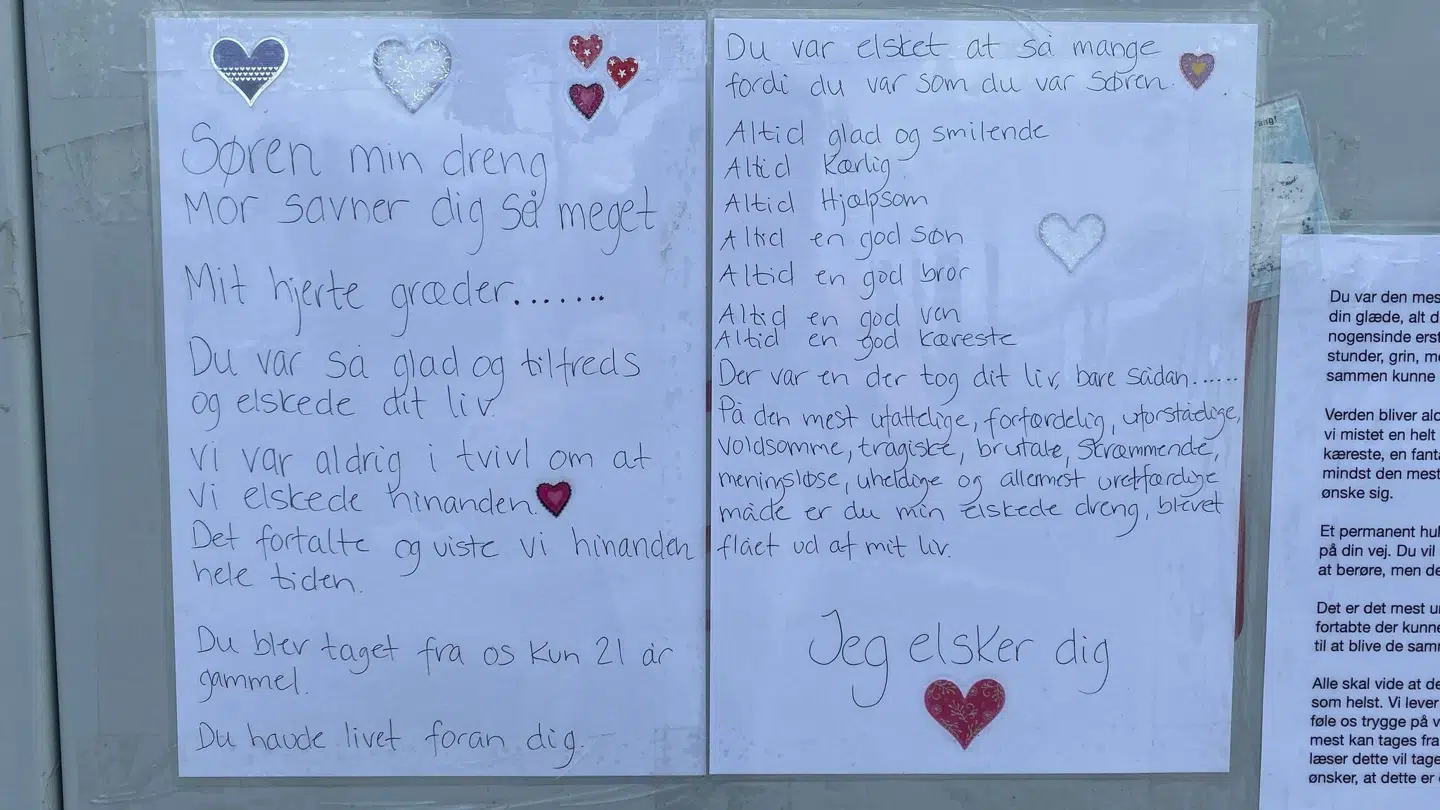 Søren min dreng
Mor savner dig så meget
Mit hjerte græder.......
Du var så glad og tilfreds
og elskede dit liv.
Vi var aldrig i tvivl om at
vi elskede hinanden.
Det fortalte og viste vi hinanden
hele tiden.
Du blev taget fra os kun 21 år
gammel.
Du havde livet foran dig.
Du var elsket at så mange
fordi du var som du var Søren.
Altid glad og smilende
Altid Kærlig.
Altid Hjælpsom
Altid en god søn
Altid en god bror
Altid en god ven
Altid en god kæreste
Der var en der tog dit liv, bare sådan......
På den mest ufattelige, forfærdelig, uforståelige,
voldsomme, tragiske, brutale, skræmmende,
meningsløse, uheldige og allermest uretfærdige
måde er du min elskede dreng, blevet
flået ud af mit liv.
Jeg elsker dig
Du var den
din glæde, alt
nogensinde
stunder, grin,
sammen kunne
Verden bliver
vi mistet en helt
kæreste, en
mindst den mest
ønske sig.
Et permanent
på din vej. Du vil
at berøre, men
Det er det mest
fortabte der
til at blive de
Alle skal vide at
som helst. Vi lever
føle os trygge på
mest kan tages fra
læser dette vil
ønsker, at dette er